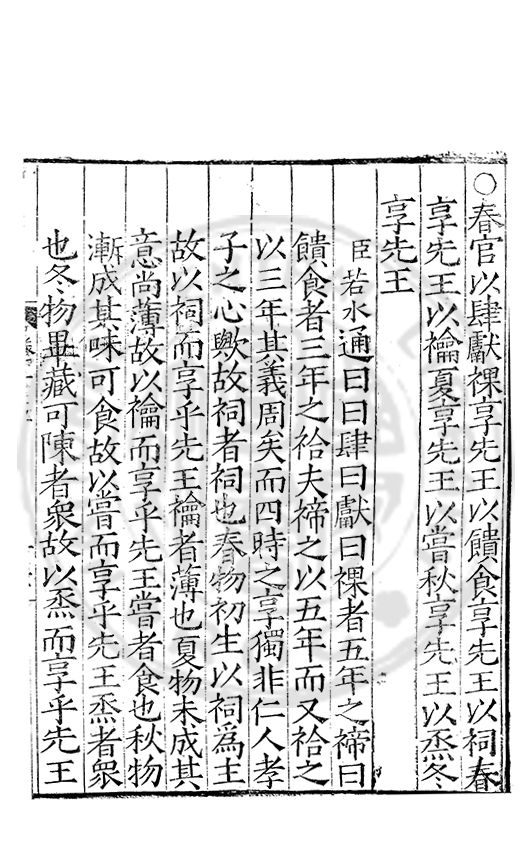 ○春官以肆獻祼享先王以饋食享先王以祠春
享先王以禴夏享先王以嘗秋享先王以烝冬
享先王
臣若水通曰曰肆曰獻曰祼者五年之禘曰
饋食者三年之祫夫禘之以五年而又祫之
以三年其義周矣而四時之享獨非仁人孝
子之心歟故祠者祠也春物初生以祠爲主
故以祠而享乎先王禴者薄也夏物未成其
意尚薄故以禴而享乎先王嘗者食也秋物
漸成其味可食故以嘗而享乎先王烝者衆
也冬物畢藏可陳者衆故以烝而享乎先王